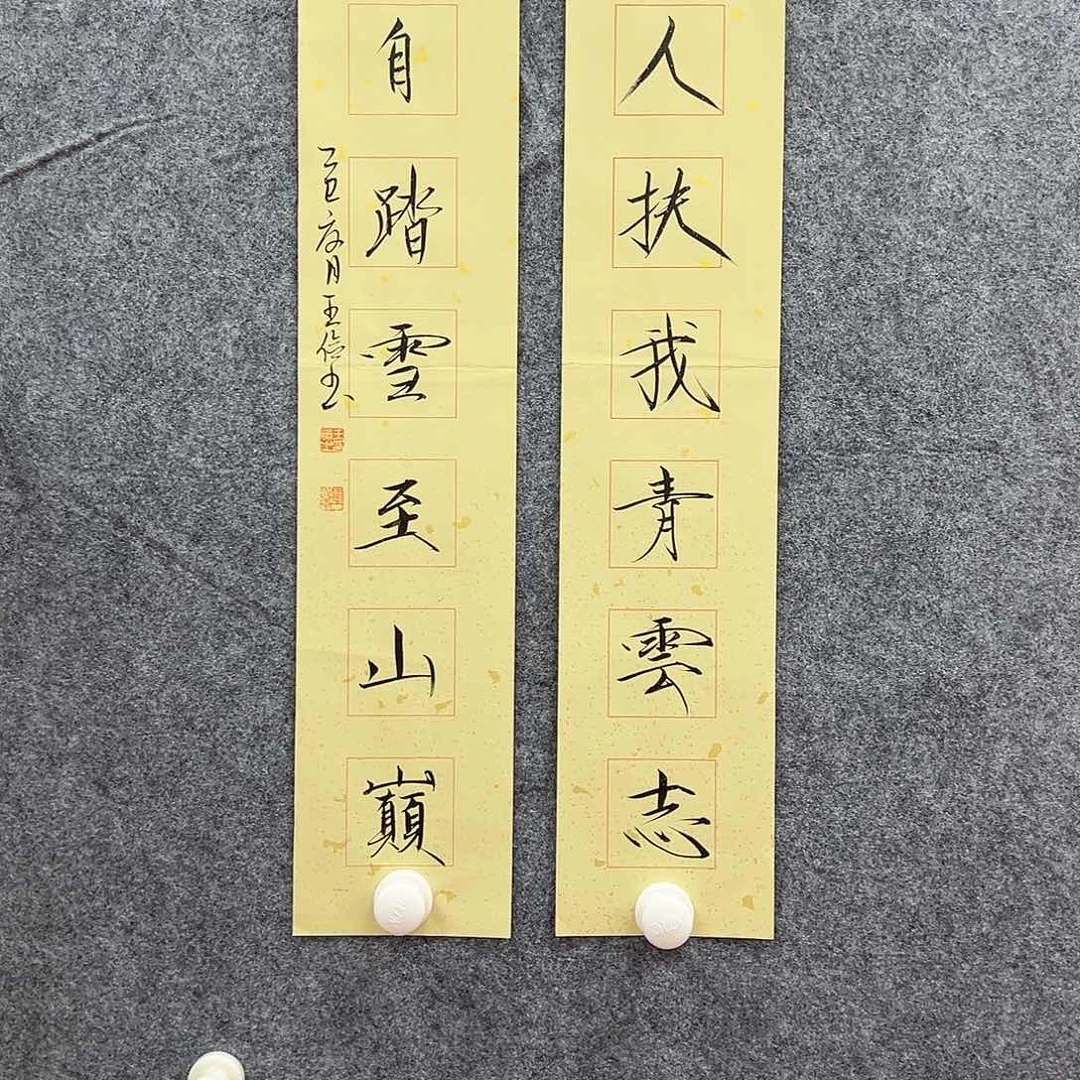 人扶我青雲志
自踏雪至山巔
乙巳夏月王信书